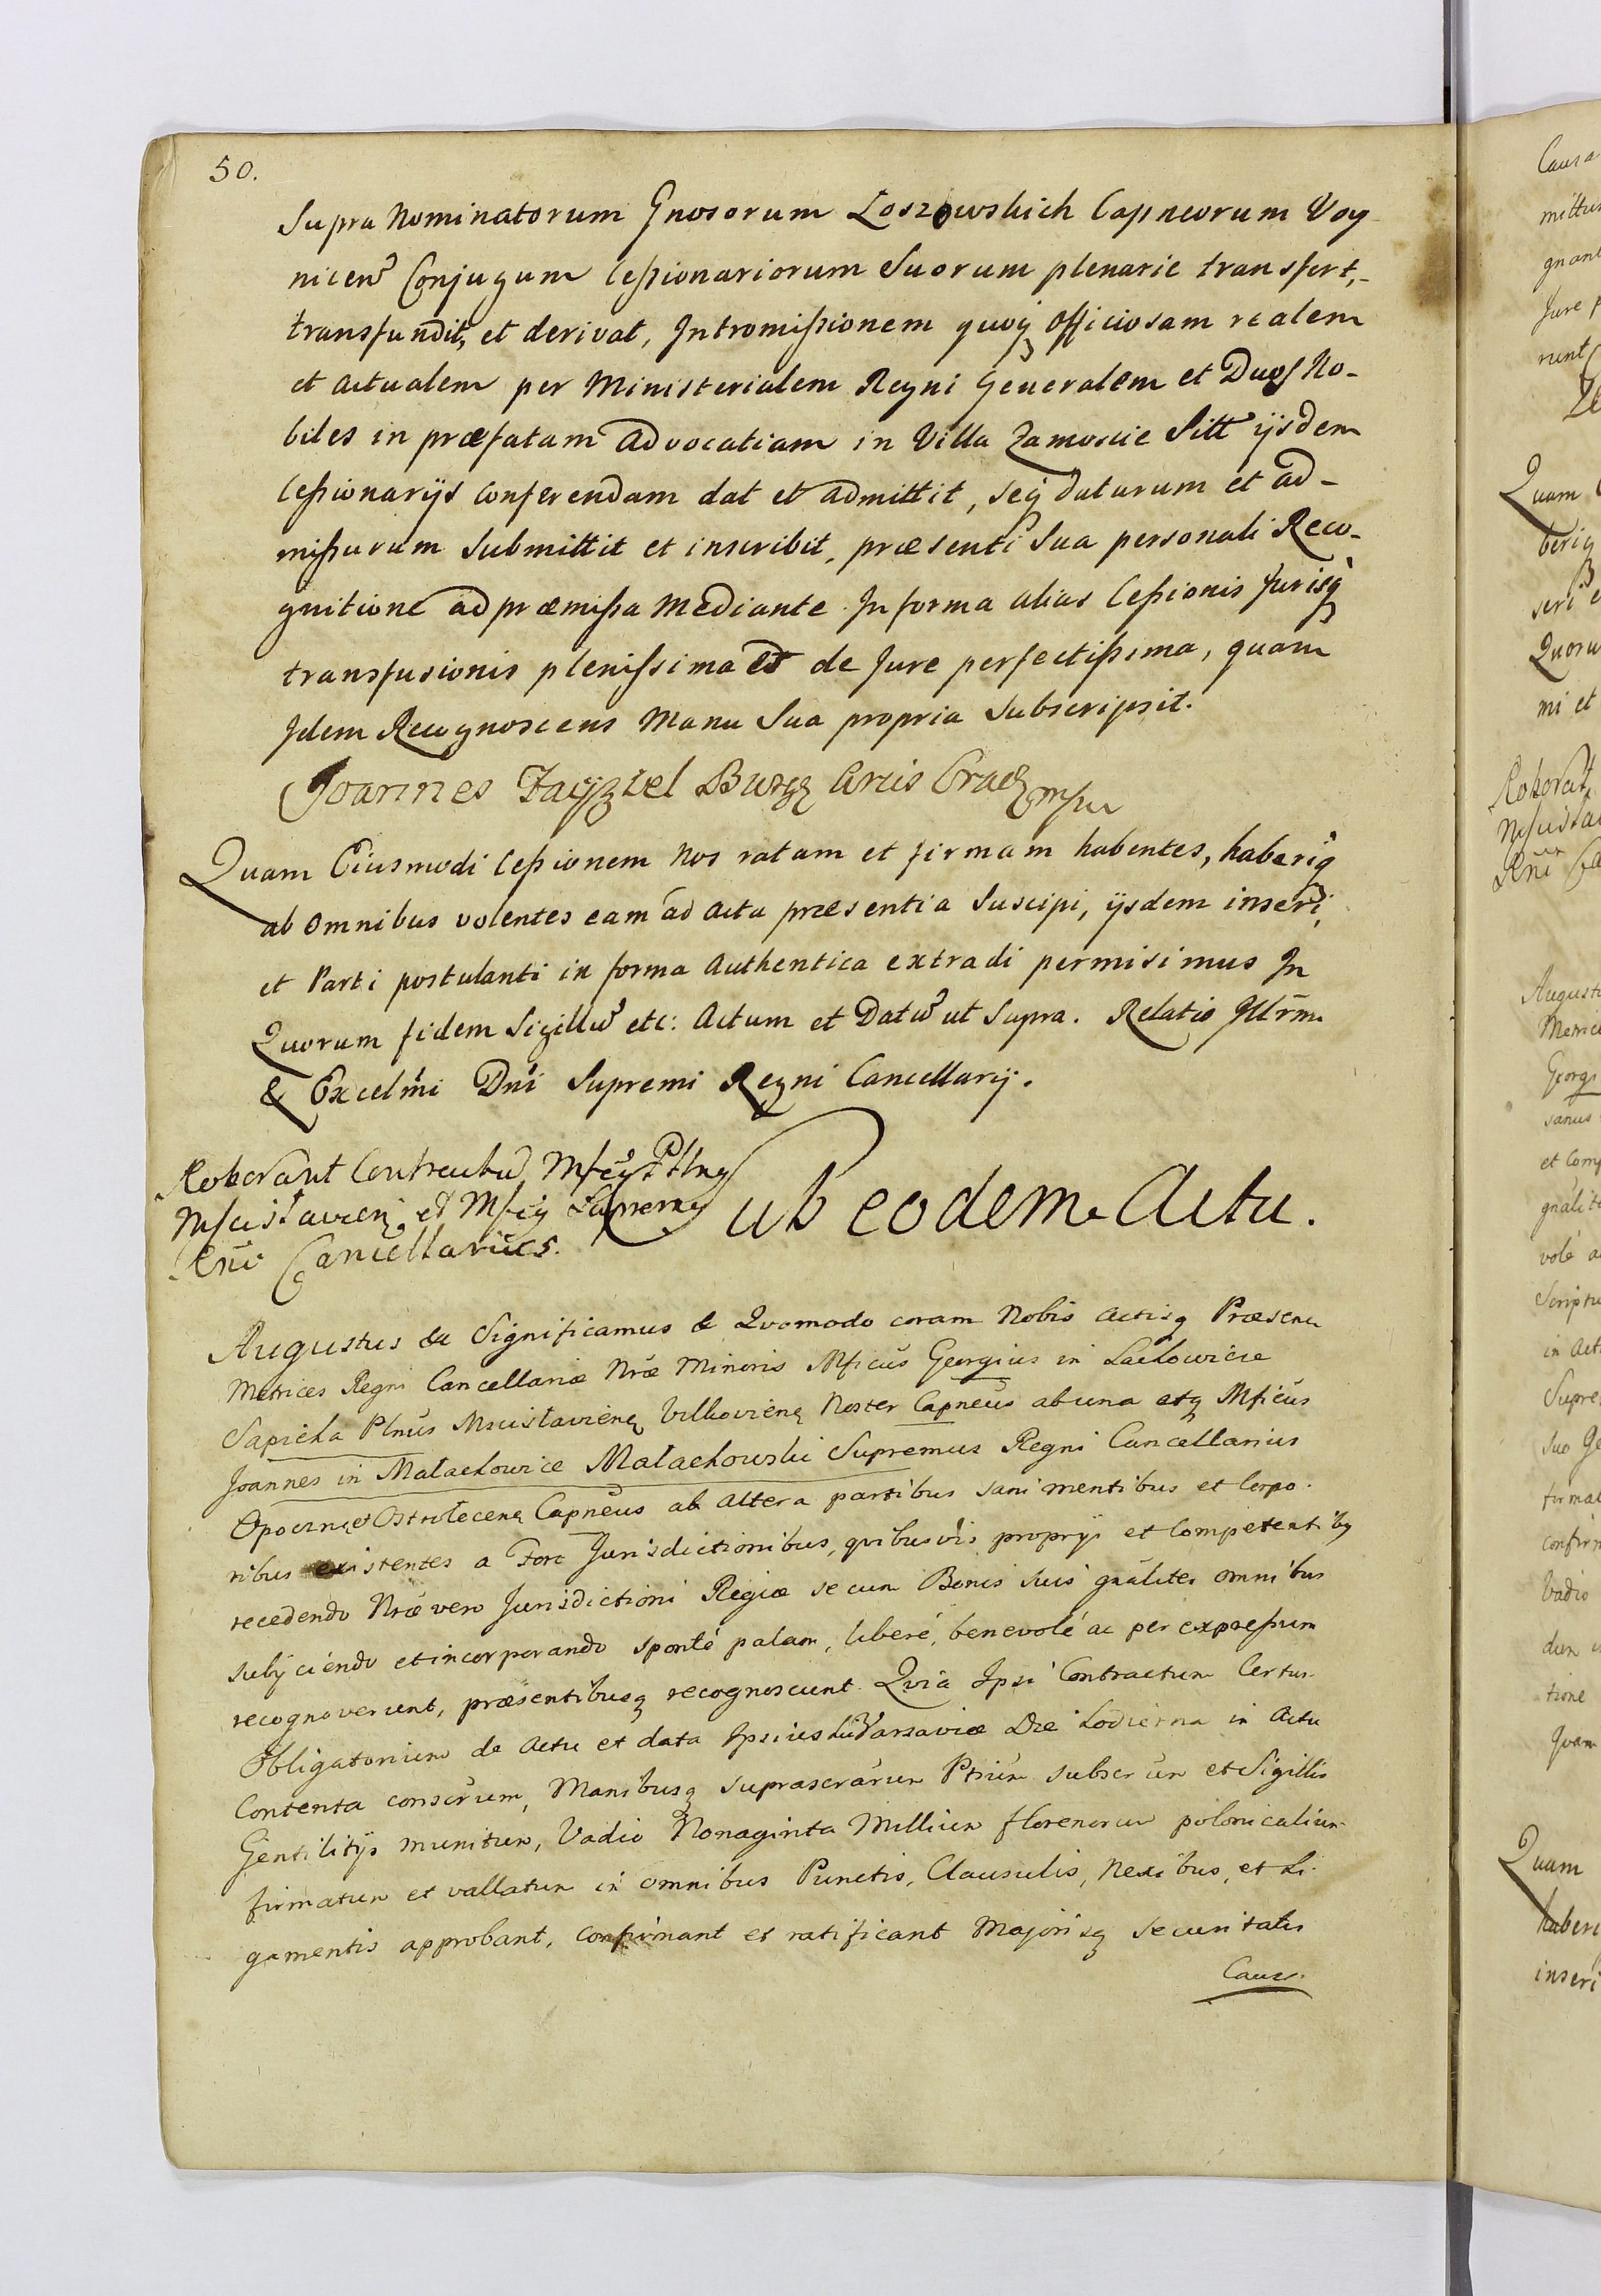 50.
Supra Nominatorum Gnosorum Loszowskich Capneorum Voy-
nicen Conjugum Cessionariorum Suorum plenarie transfert,
transfundit, et derivat, Intromissionem quoq officiosam realem
et actualem per Ministerialem Regni Generalem et Duos No-
biles in præfatam advocatiam in Villa Zamoscie Sitt ijsdem
Cessionarijs conferendam dat et admittit, seq daturum et ad-
missurum Submittit et inscribit, præsenti Sua personali Reco-
gnitione ad præmissa mediante. In forma alias Cessionis Jurisq
transfusionis plenissima et de Jure perfectissima, quam
Idem Recognoscens Manu Sua propria Subscripsit.
Joannes Burg Arcis Crac mpu
Quam Eiusmodi Cessionem Nos ratam et firmam habentes, haberiq
ab omnibus volentes eam ad Acta præsentia Suscipi, ijsdem inseri,
et Parti postulanti in forma Authentica extradi permisimus In
Quorum fidem Sigillu etc: Actum et Datu ut Supra. Relatio Illrm
& Excelmi Dni Supremi Regni Cancellarij.
Roborant Contractu Mfcy Pltny
Mscistavien et Mfcy Supremy
Rni Cancellarius.
Sub eodem Actu.
Augustus &c Significamus & Quomodo coram Nobis Actisq Præsen
Metrices Regni Cancellariæ Nræ Minoris Mficus Georgius in Lachowicze
Sapieha Pltnus Mscistaviens Vilkoviens Noster Capneus ab una atq Mficus
Joannes in Małachowice Małachowski Supremus Regni Cancellarius
Opocen et Ostrołecens Capneus ab altera partibus sani mentibus et Corpo-
ribus existentes a Foro Jurisdictionibus, quibusvis proprijs et Competentiby
recedendo Nræ vero Jurisdictioni Regiæ se cum Bonis suis gnaliter omnibus
subijciendo et incorporando sponté palam, liberé, benevolé ac per expressum
recognoverunt, præsentibusq recognoscunt. Quia Ipsi Contractum Certus
Obligatorium de Actu et data Ipsius hic Varsaviæ Die hodierna in Actu
Contenta conscrum, Manibusq suprascrarum Ptium subscrum et Sigillis
Gentilitijs munitum, Vadio Nonaginta Millium florenorum polonicalium
firmatum et vallatum in omnibus Punctis, Clausulis, Nexibus, et Li-
gamentis approbant, confirmant et ratificant Majorisq securitatis
Causa